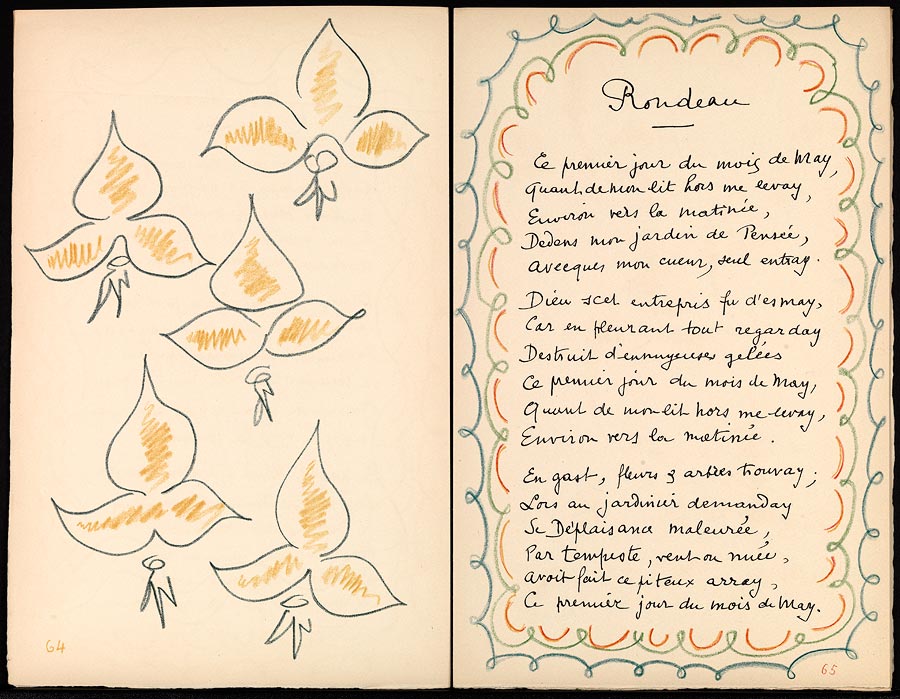 64
Rondeau
Ce premier jour du mois de May,
Quant de mon lit hors me levay,
Environ vers la matinée,
Dedens mon jardin de Pensée,
Avecques mon cueur, seul entray.
Dieu scet entrepris fu d'esmay,
Car en pleurant tout regarday
Destruit d'ennuyeuses gelées
Ce premier jour du mois de May,
Quant de mon lit hors me levay,
Environ vers la matinée.
En gast, fleurs & arbres trouvay;
Lors au jardinier demanday
Se Desplaisance maleurée,
Par tempeste, vent ou nuée,
Avoit fait ce piteux array,
Ce premier jour du mois de May.
65